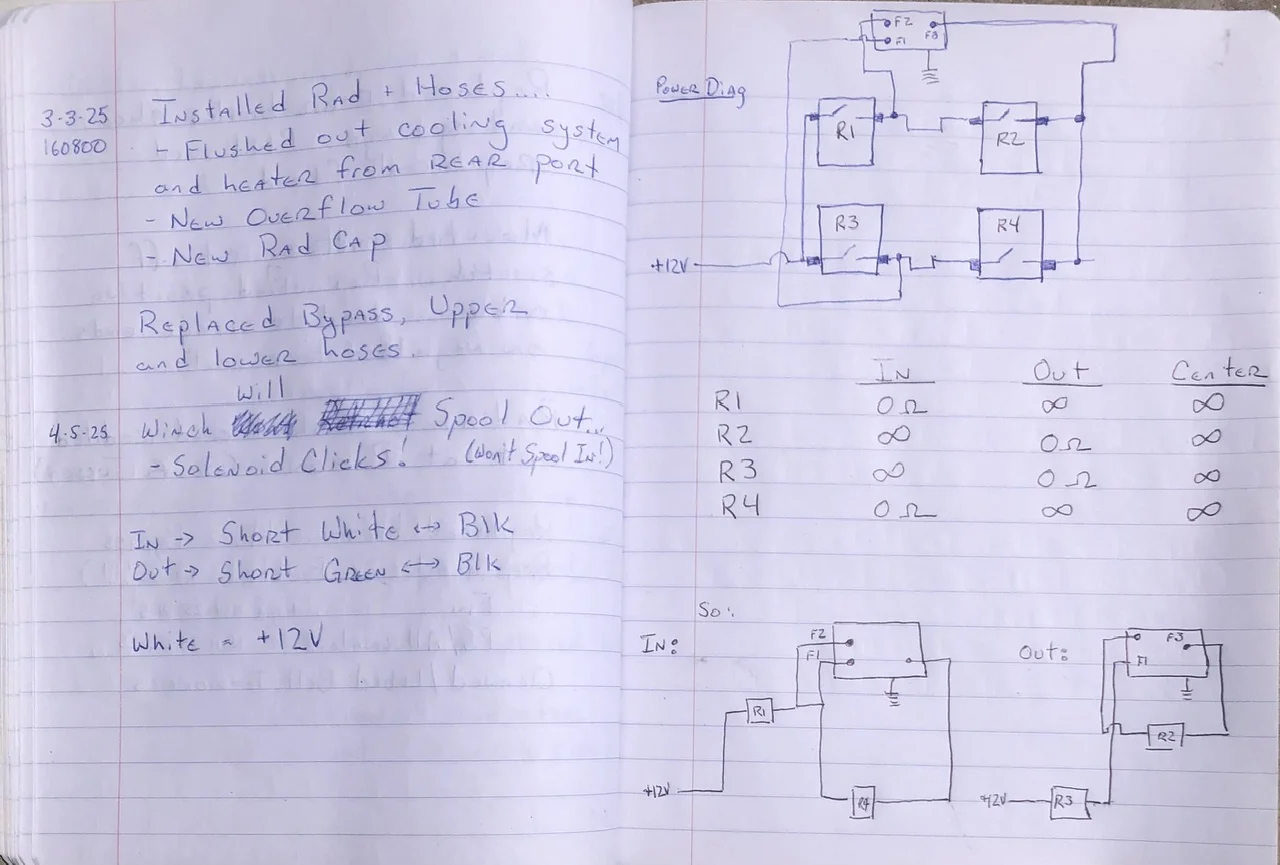 3-3-25 Installed Rad + Hoses....
160800 - Flushed out cooling system
and heater from REAR port
- New Overflow Tube
- New Rad Cap
Replaced Bypass, Upper
and lower hoses.
Will
4-5-25 Winch Spool Out...
- Solenoid Clicks! (Won't Spool In!)
In -> Short White <-> Blk
Out -> Short Green <-> Blk
White = +12V
F2
F1 F3
Power Diag
R1 R2
R3 R4
+12V
In Out Center
R1 0Ω ∞ ∞
R2 ∞ 0Ω ∞
R3 ∞ 0Ω ∞
R4 0Ω ∞ ∞
So:
In:
F2
F1
R1
+12V
R4
Out:
F3
F1
R2
+12V
R3